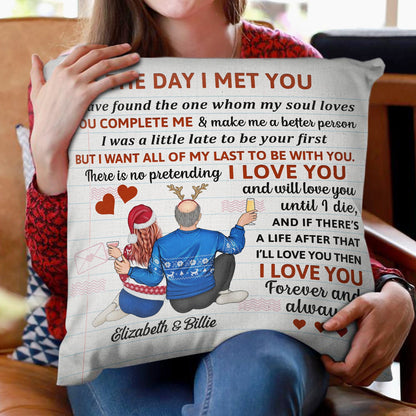 THE DAY I MET YOU
have found the one whom my soul loves
YOU COMPLETE ME & make me a better person
I was a little late to be your first
BUT I WANT ALL OF MY LAST TO BE WITH YOU.
There is no pretending I LOVE YOU
and will love you
until I die,
AND IF THERE'S
A LIFE AFTER THAT
I'LL LOVE YOU THEN
I LOVE YOU
Forever and
always
Elizabeth & Billie